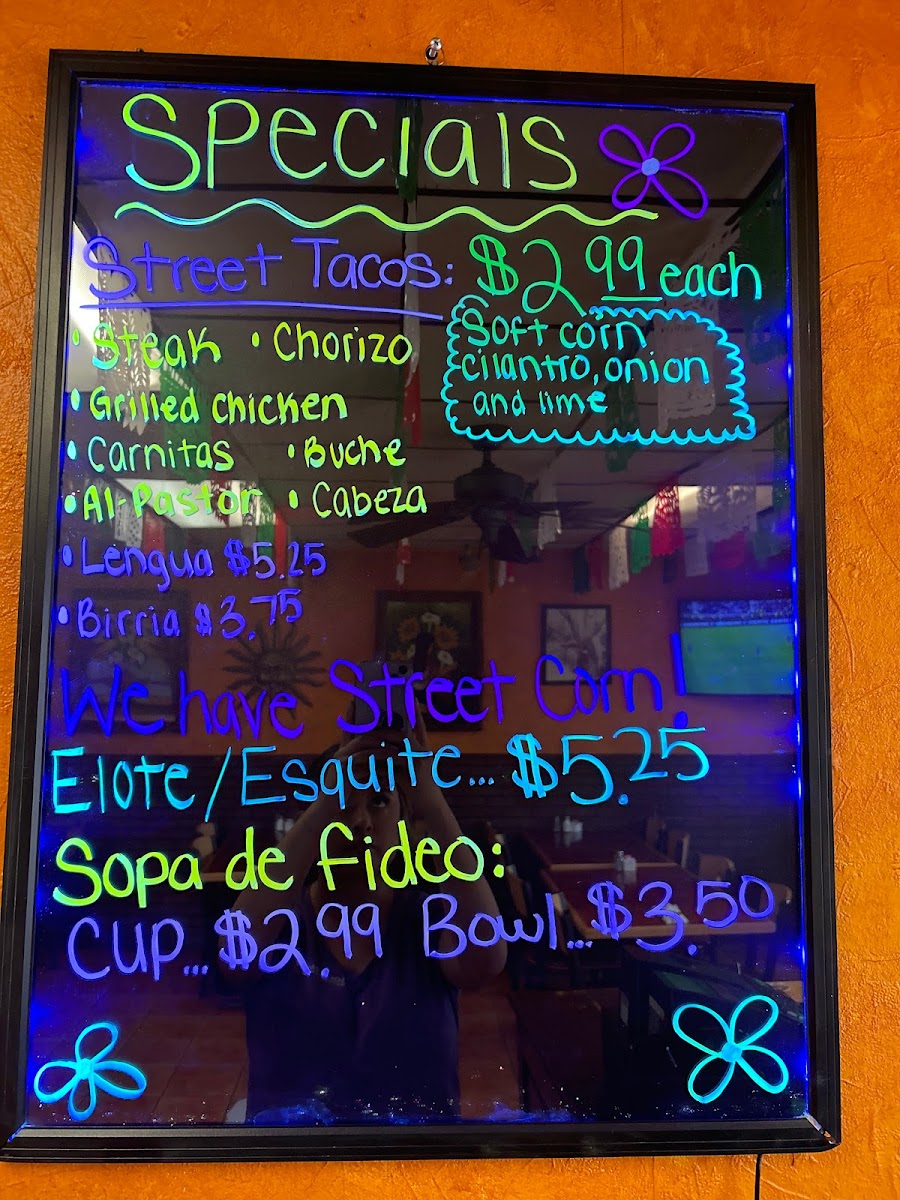 Specials
Street Tacos: $2.99 each
• Steak • Chorizo
• Grilled chicken
• Carnitas • Buche
• Al-Pastor • Cabeza
Soft corn
cilantro, onion
and lime
• Lengua $5.25
• Birria $3.75
We have Street Corn!
Elote/Esquite... $5.25
Sopa de fideo:
Cup... $2.99 Bowl... $3.50